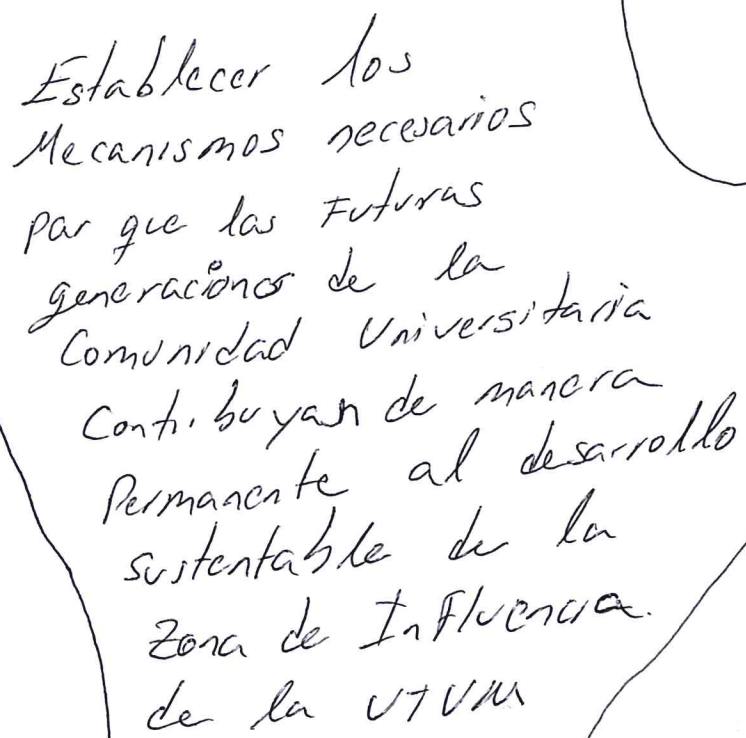 Establecer los
Mecanismos necesarios
par que las Futuras
generaciones de la
Comunidad Universitaria
Contribuyan de manera
Permanente al desarrollo
sustentable de la
Zona de Influencia.
de la UTVM